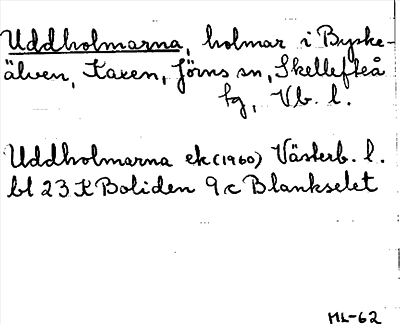 Uddholmarna, holmar i Byske-
älven, Kaxen, Jörns sn, Skellefteå
tg, Vb. l.
Uddholmarna ek (1960) Västerb. l.
bl 23 K Boliden 9 c Blankselet
ML-62